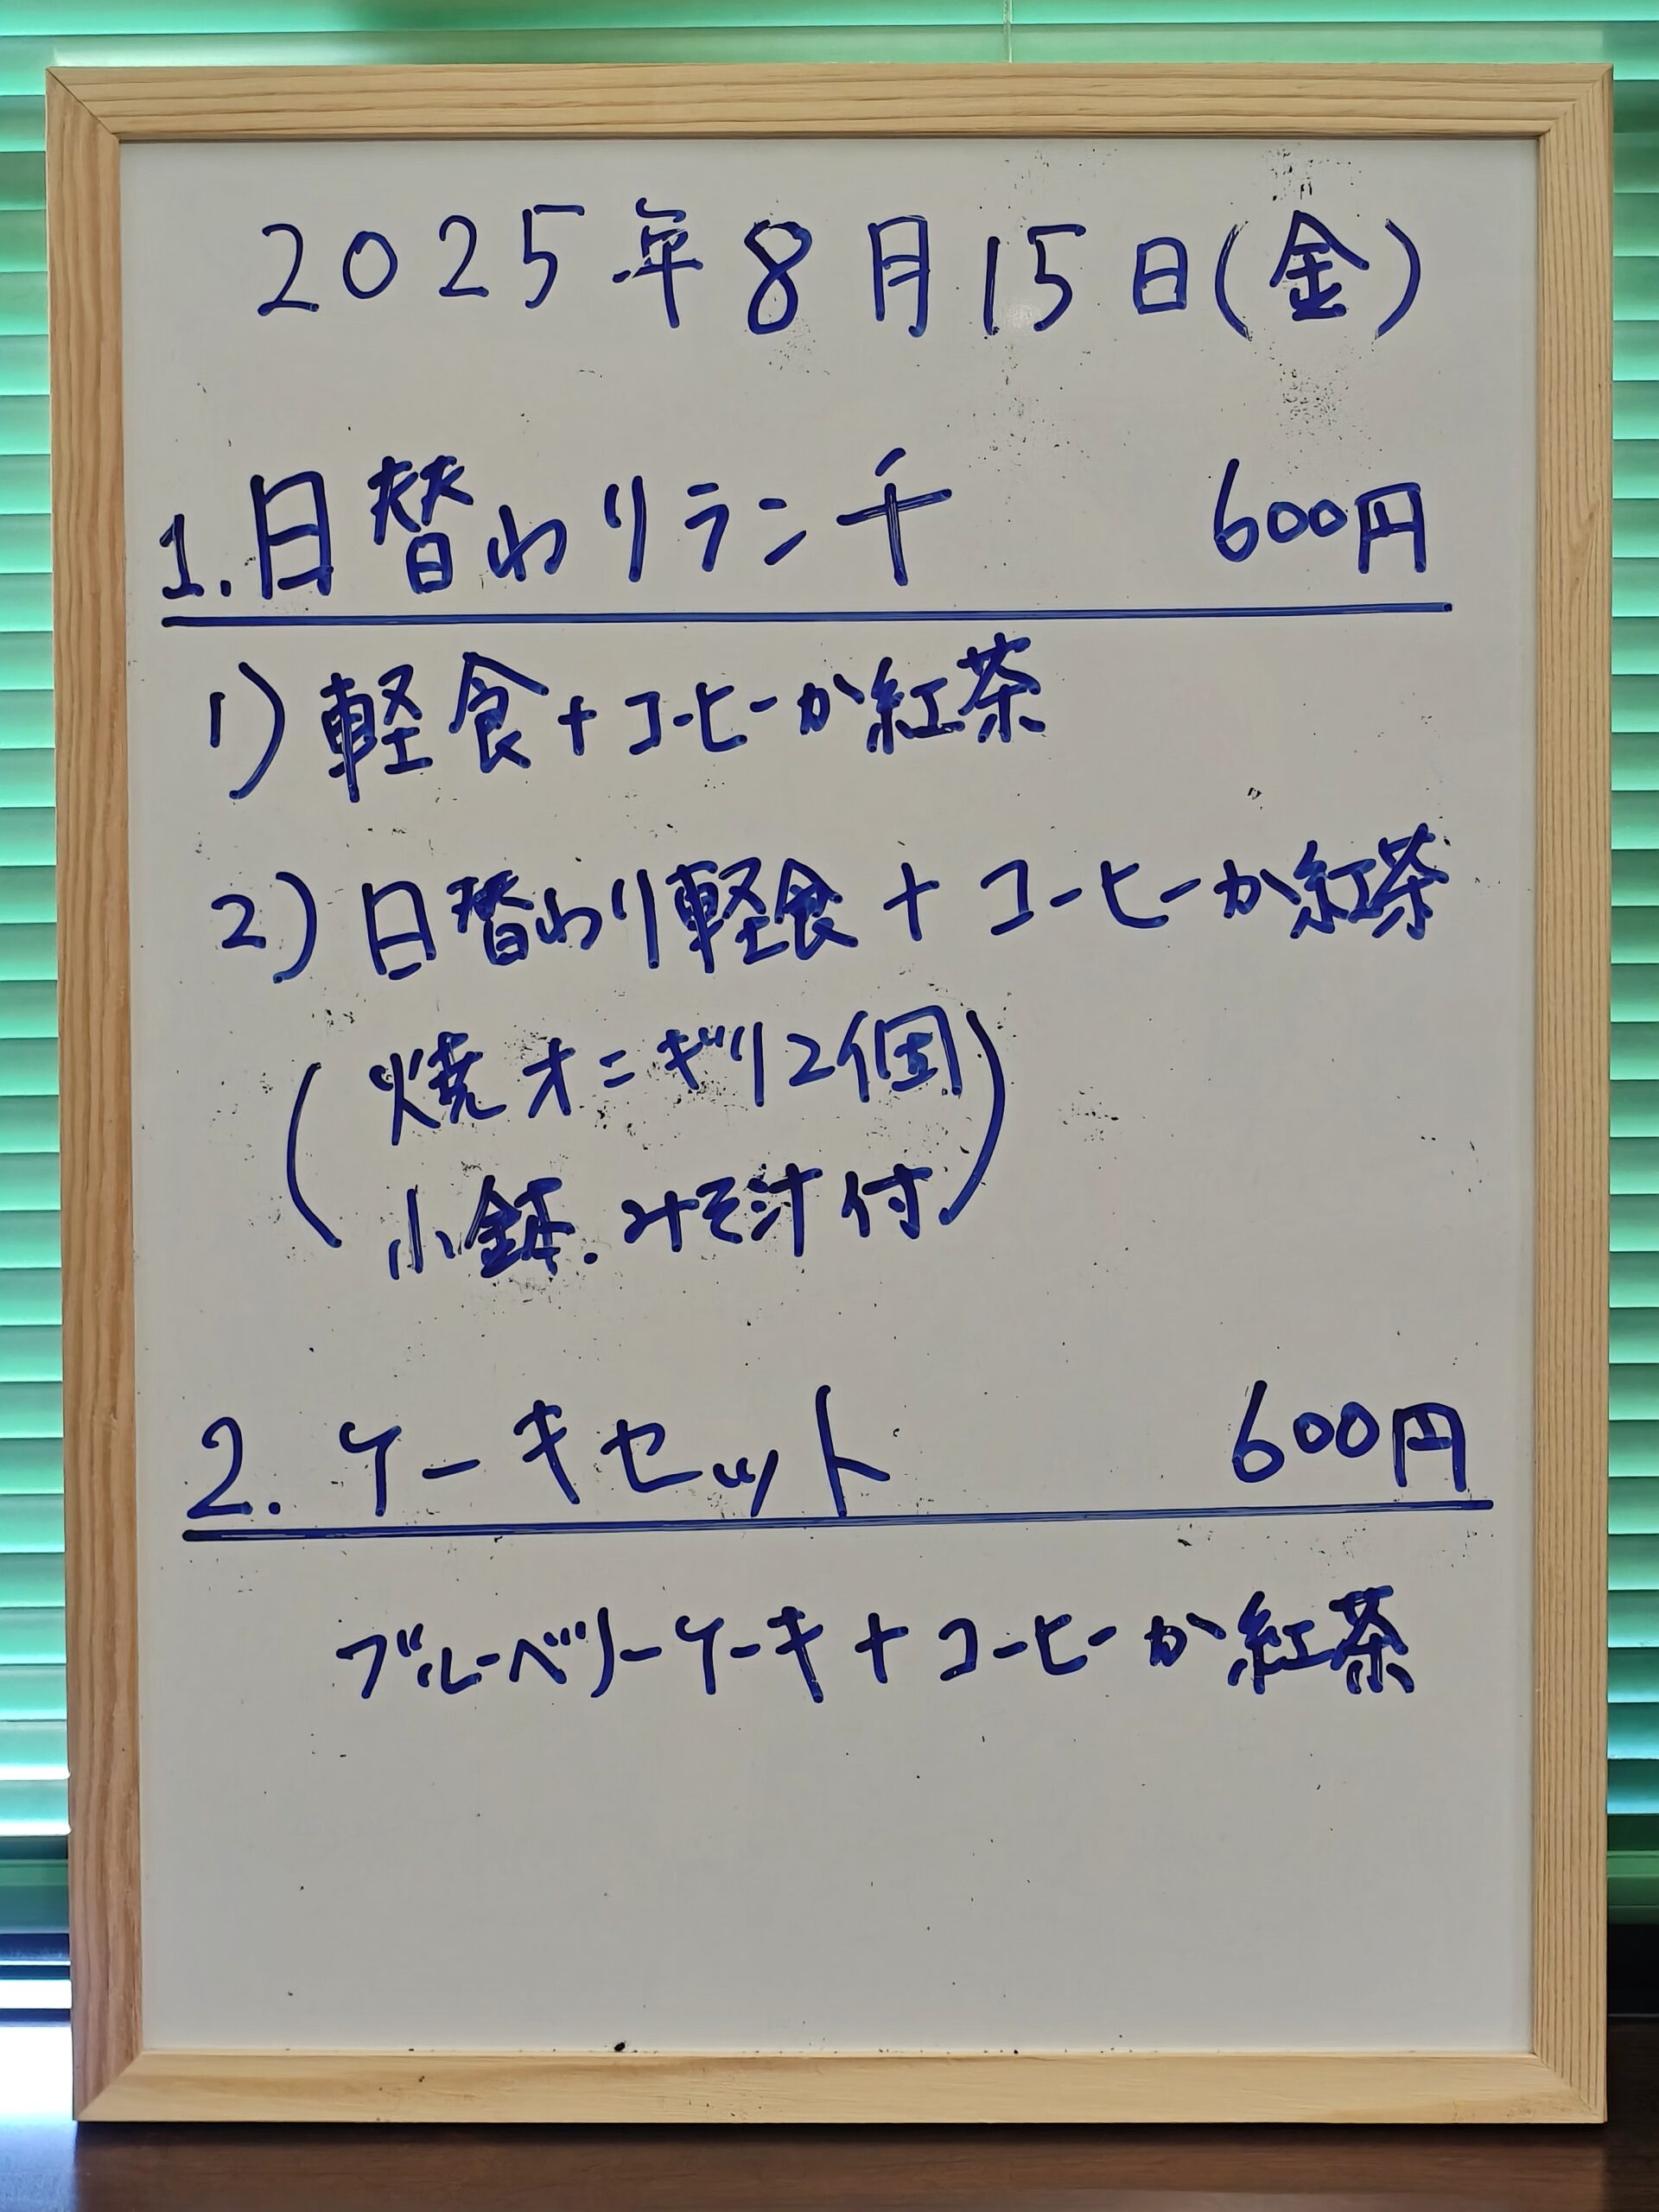 2025年8月15日(金)
1.日替わりランチ 600円
1)軽食+コーヒーか紅茶
2)日替わり軽食+コーヒーか紅茶
(焼オニギリ2個
小鉢.みそ汁付)
2.ケーキセット 600円
ブルーベリーケーキ+コーヒーか紅茶